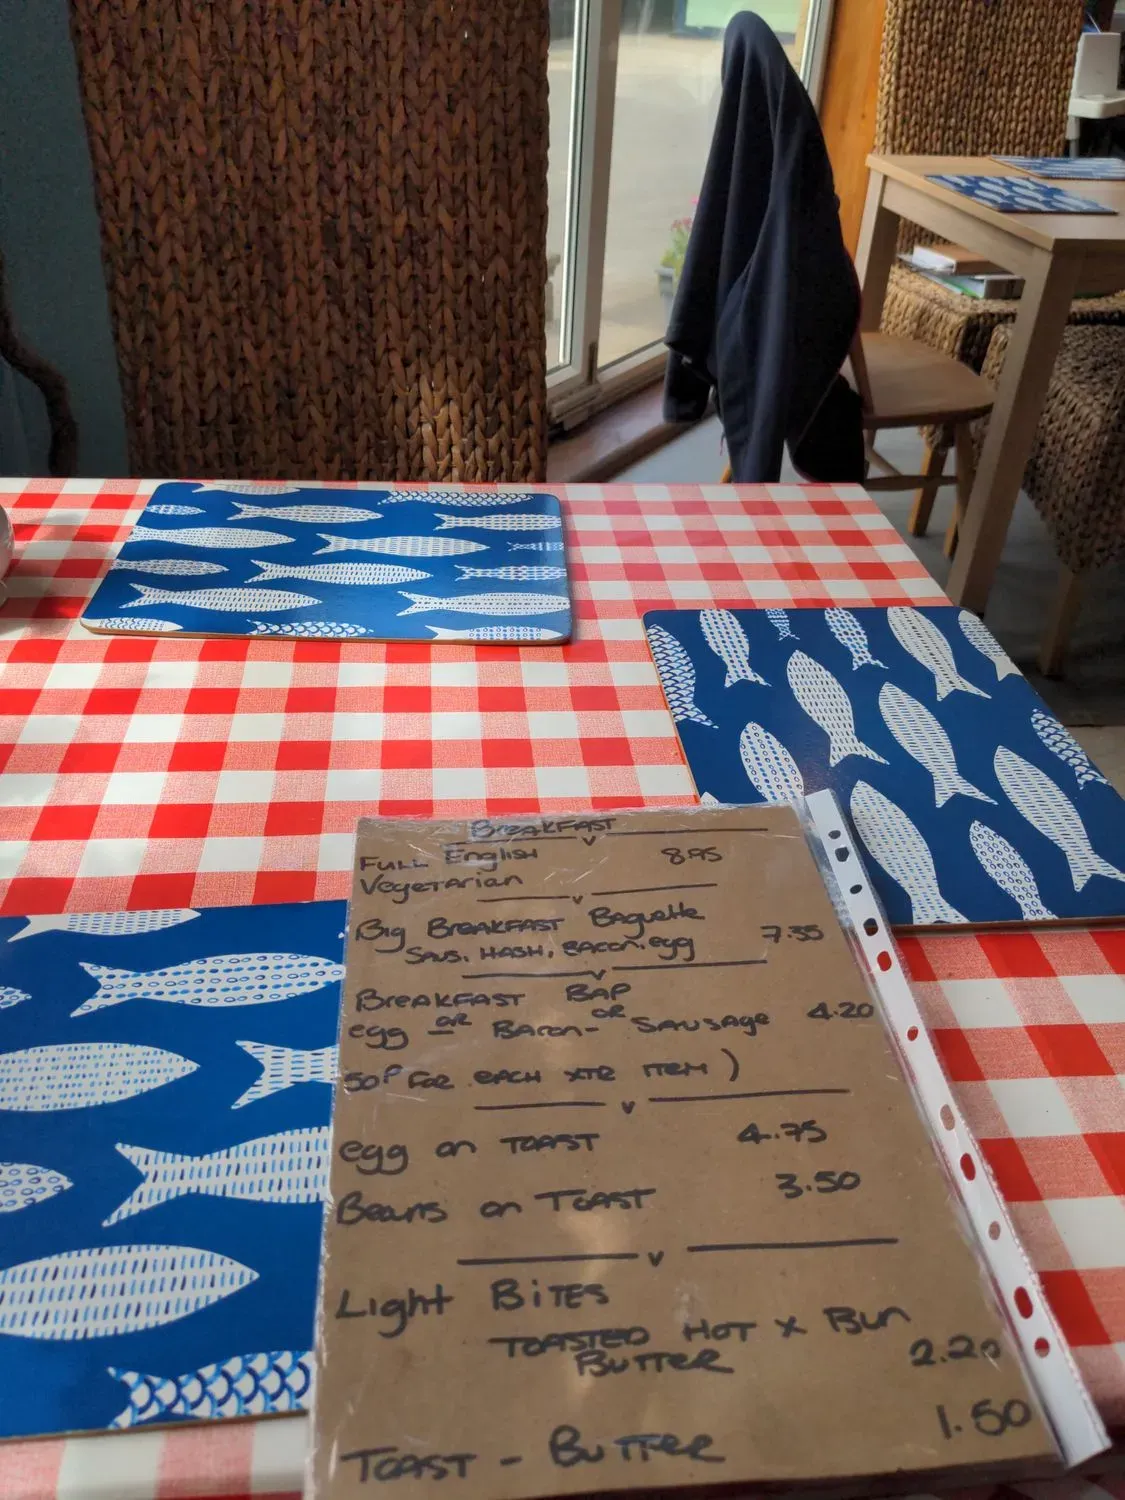 BREAKFAST
Full English 8.95
Vegetarian
Big Breakfast Baguette
Saus, Hash, Bacon, egg 7.35
Breakfast Bap
egg or Bacon - or Sausage 4.20
50P for each xtr item )
egg on Toast 4.75
Beans on Toast 3.50
Light Bites
Toasted Hot x Bun
Butter 2.20
Toast - Butter 1.50